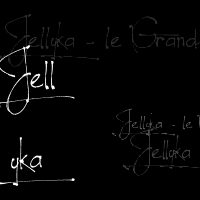 Jellyka - le Grand
Jell
yka
Jellyka - le
Jellyka